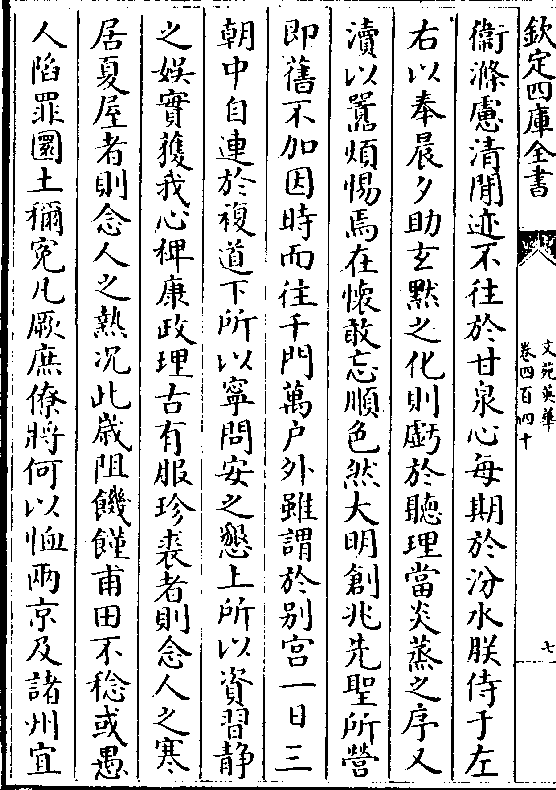 欽定四庫全書
文苑英華
卷四百四十
七
衛滌慮清閒迹不往於甘泉心每期於汾水朕侍于左
右以奉晨夕助玄黙之化則虧於聽理當炎蒸之序又
瀆以囂煩惕焉在懷敢忘順色然大明創兆先聖所營
即舊不加因時而往千門萬户外雖謂於别宮一日三
朝中自連於複道下所以寧問安之懇上所以資習靜
之娛實獲我心稗康政理古有服珍裘者則念人之寒
居夏屋者則念人之熱况此歳阻饑饉甫田不稔或愚
人陷罪圜土稱寃凡厥庶僚將何以恤兩京及諸州宜